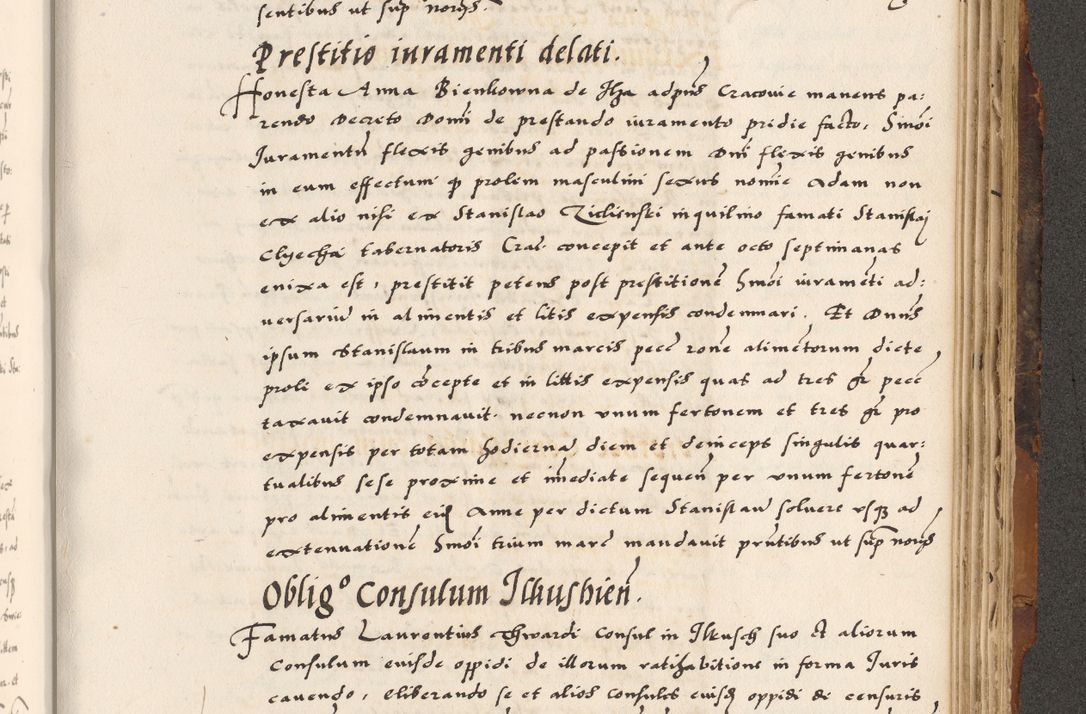 sentibus ut sup notarijs.
Prestitio iuramenti delati.
Honesta Anna Bienkowna de Ilza adpns Cracovie manens pa:
rendo Decreto Domi de prestando iuramento pridie facto, Hmoi
Juramentu flexis genibus ad passionem Dni flexis genibus
in eum effectum q prolem masculini sexus nomie Adam non
ex alio nisi ex Stanislao Ziclienski inquilino famati Stanislaj
Clyecha tabernatoris Crac concepit et ante octo septimanas
enixa est, prestitit petens post prestitione Hmoi iurameti ad:
versariu in alimentis et litis expensis condemnari. Et Dnus
ipsum Stanislaum in tribus marcis pecc rone alimetorum dicte
proli ex ipso cocepte et in littis expensis quas ad tres gr pecc
taxavit condemnavit. necnon unum fertonem et tres gr pro
expensis per totam hodierna diem et deinceps singulis quar:
tualibus sese proxime et imediate sequen per unum fertone
pro alimentis eiusd Anne per dictum Stanislau solvere usq ad
extenuatione Hmoi trium marc mandavit pntibus ut sup notarijs
Oblig° Consulum Ilkushien.
Famatus Laurentius Thwardi Consul in Ilkusch suo et aliorum
Consulum euisde oppidi de illorum ratihabitione in forma Juris
cavendo, eliberando se et alios consules euisd oppidi de censuris